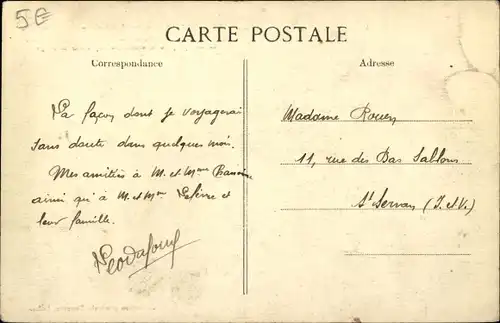 5€
CARTE POSTALE
Correspondance
Adresse
La façon dont je voyagerai
sans doute dans quelques mois.
Mes amitiés à M. et Mme
ainsi qu'à M. et Mme Lefèvre et
leur famille.
Madame Rouen
11, rue des Bas Sablons
St Servan (I. et V.)